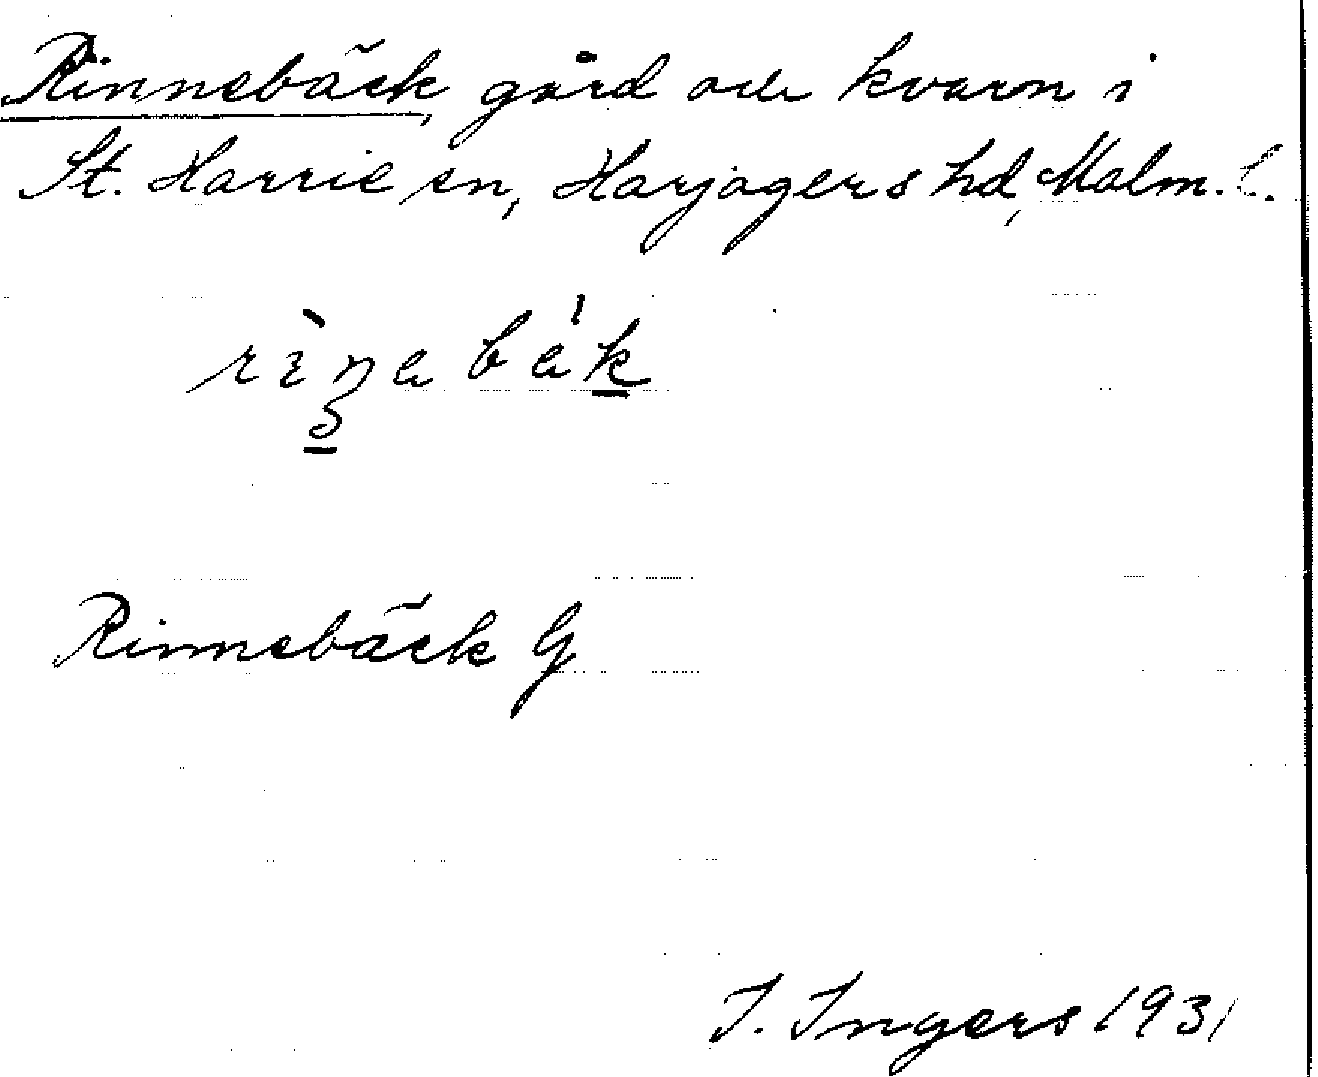 Rinnebäck, gård och kvarn i
St. Harrie sn, Harjagers hd, Malm. l.
Rinnebäck G
I. Ingers 1931